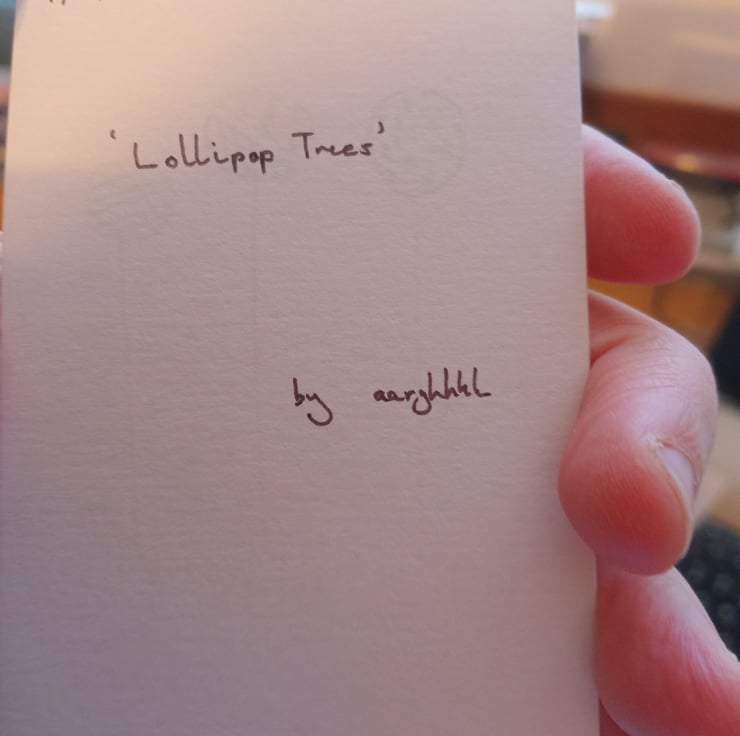 'Lollipop Trees'
by aarghhhh